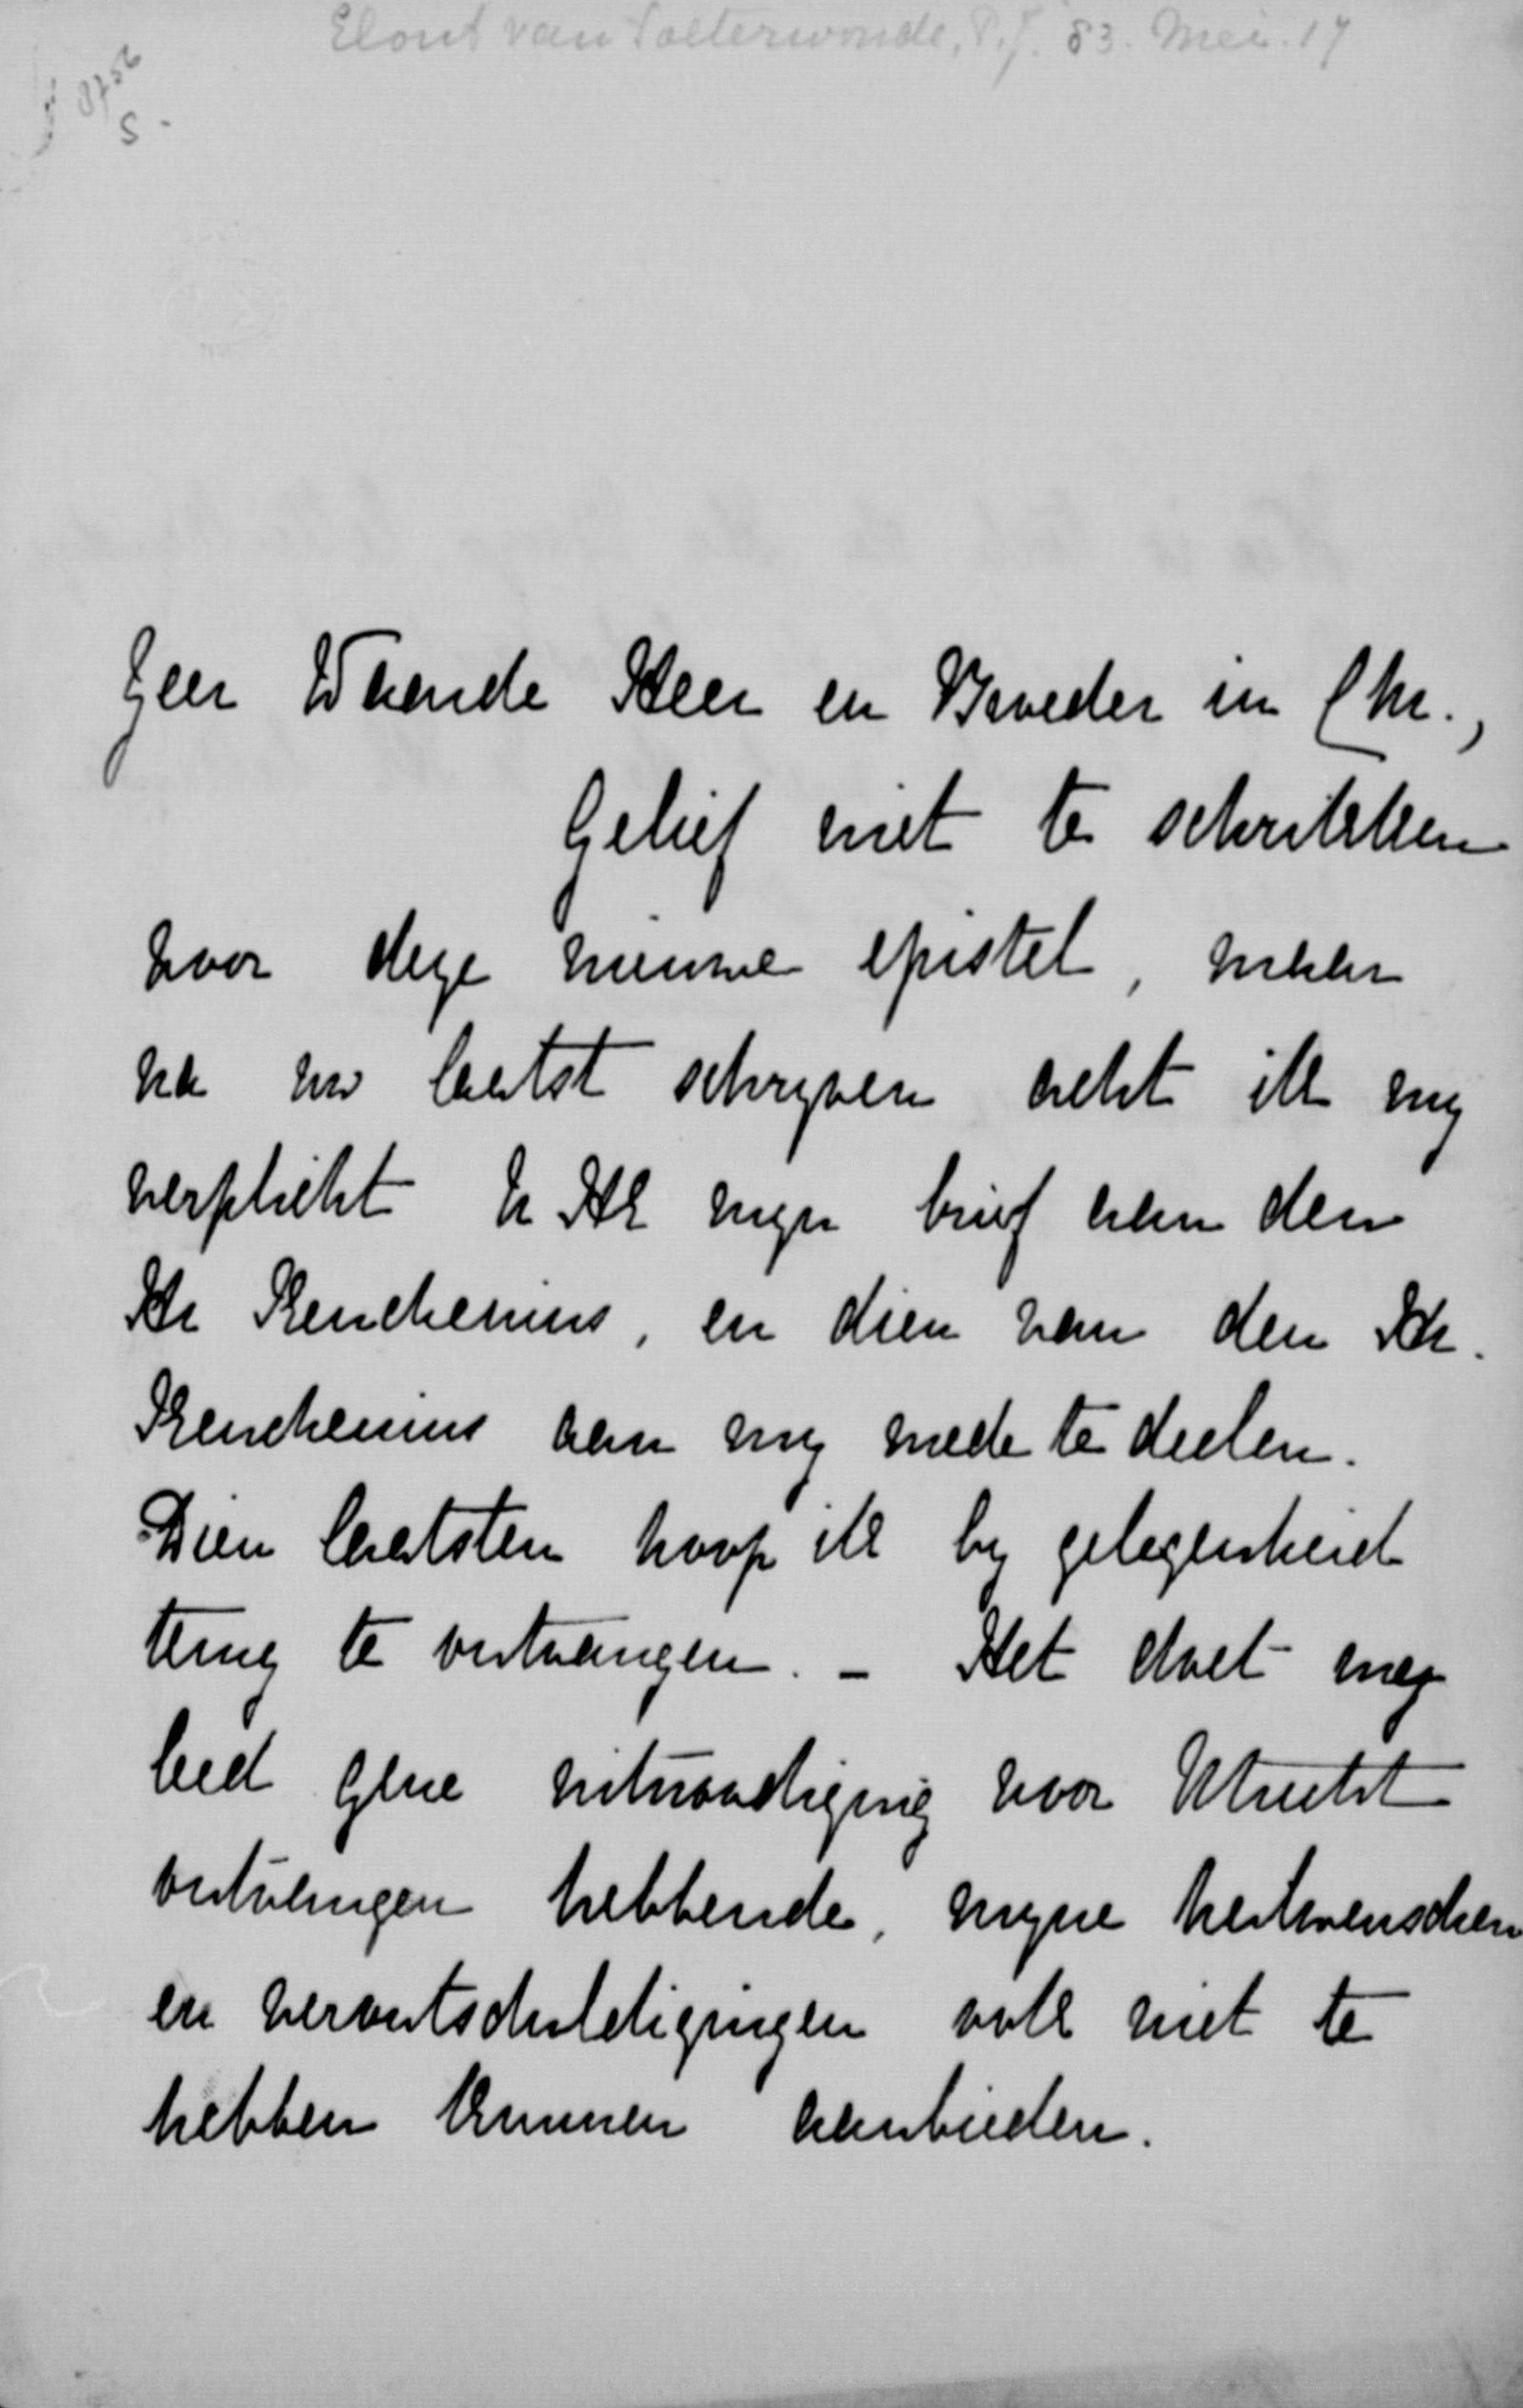 Elout van Soeterwoude, P.J. 83. Mei. 17
8756
S -
Zeer Waarde Heer en Broeder in Chr.,
Gelief niet te schrikken
voor deze nieuwe epistel, maar
na uw laatst schryven acht ik my
verplicht U HE myn brief aan den
Hr Keuchenius, en dien van den Hr.
Keuchenius aan my mede te deelen.
Dien laatsten hoop ik by gelegenheid
terug te ontvangen. - Het doet my
leed geene uitnoodiging voor Utrecht
ontvangen hebbende, myne heilwenschen
en verontschuldigingen ook niet te
hebben kunnen aanbieden.